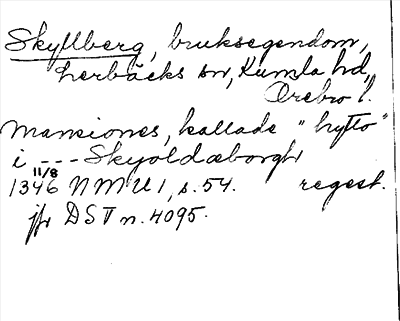 Skyllberg, bruksegendom,
Lerbäcks sn, Kumla hd,
Örebro l.
Mansiones, kallade "hytto"
i --- Skyoldæborgh
11/8
1346 NMU 1, s. 54. regest.
jfr DS V n. 4095.